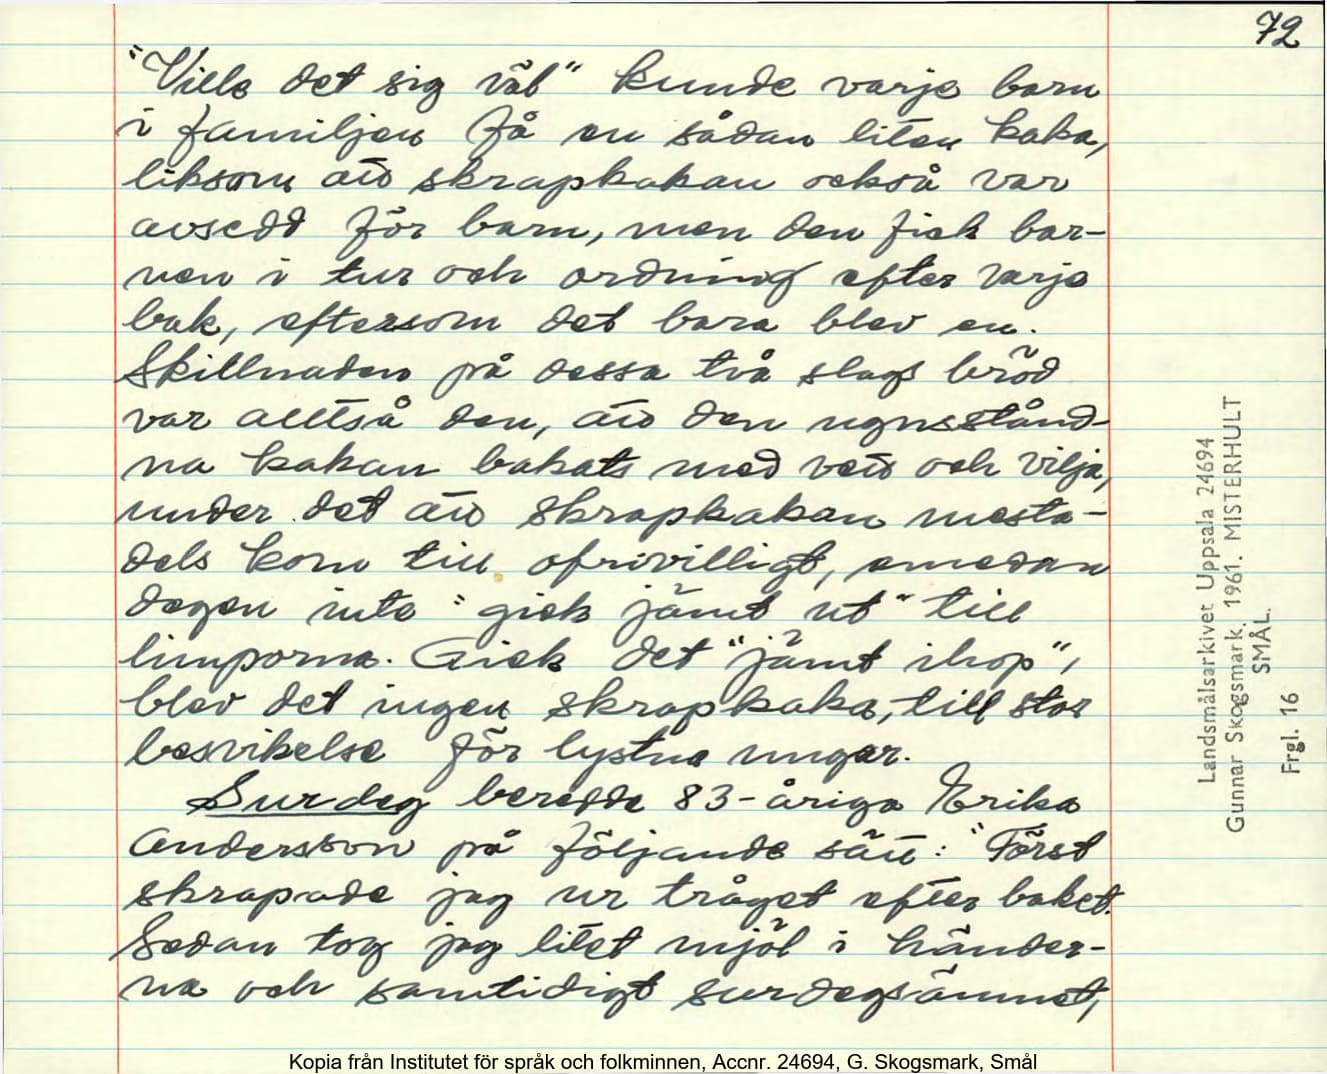 72
"Ville det sig väl" kunde varje barn
i familjen få en sådan liten kaka,
liksom att skrapkakan också var
avsedd för barn, men den fick bar-
nen i tur och ordning efter varje
bak, eftersom det bara blev en.
Skillnaden på dessa två slags bröd
var alltså den, att den ugnsstånd-
na kakan bakats med vett och vilja,
under det att skrapkakan mesta-
dels kom till ofrivilligt, emedan
degen inte "gick jämt ut" till
limporna. Gick det "jämt ihop",
blev det ingen skrapkaka, till stor
besvikelse för lystna ungar.
Surdeg beredde 83-åriga Erika
Andersson på följande sätt: "Först
skrapade jag ur tråget efter baket.
Sedan tog jag litet mjöl i händer-
na och samtidigt surdegsämnet,
Landsmålsarkivet Uppsala 24694
Gunnar Skogsmark. 1961. MISTERHULT
SMÅL.
Frgl. 16
Kopia från Institutet för språk och folkminnen, Accnr. 24694, G. Skogsmark, Smål